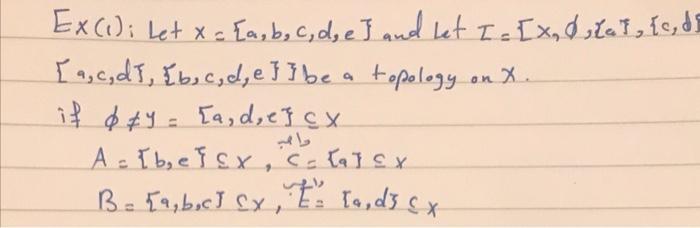 Ex(1): Let X = {a,b,c,d,e} and let τ = {X, ∅, {a}, {c,d}
{a,c,d}, {b,c,d,e}} be a topology on X.
if ∅ ≠ y = {a,d,e} ⊆ X
A = {b,e} ⊆ X, C = {a} ⊆ X
B = {a,b,c} ⊆ X, E = {a,d} ⊆ X